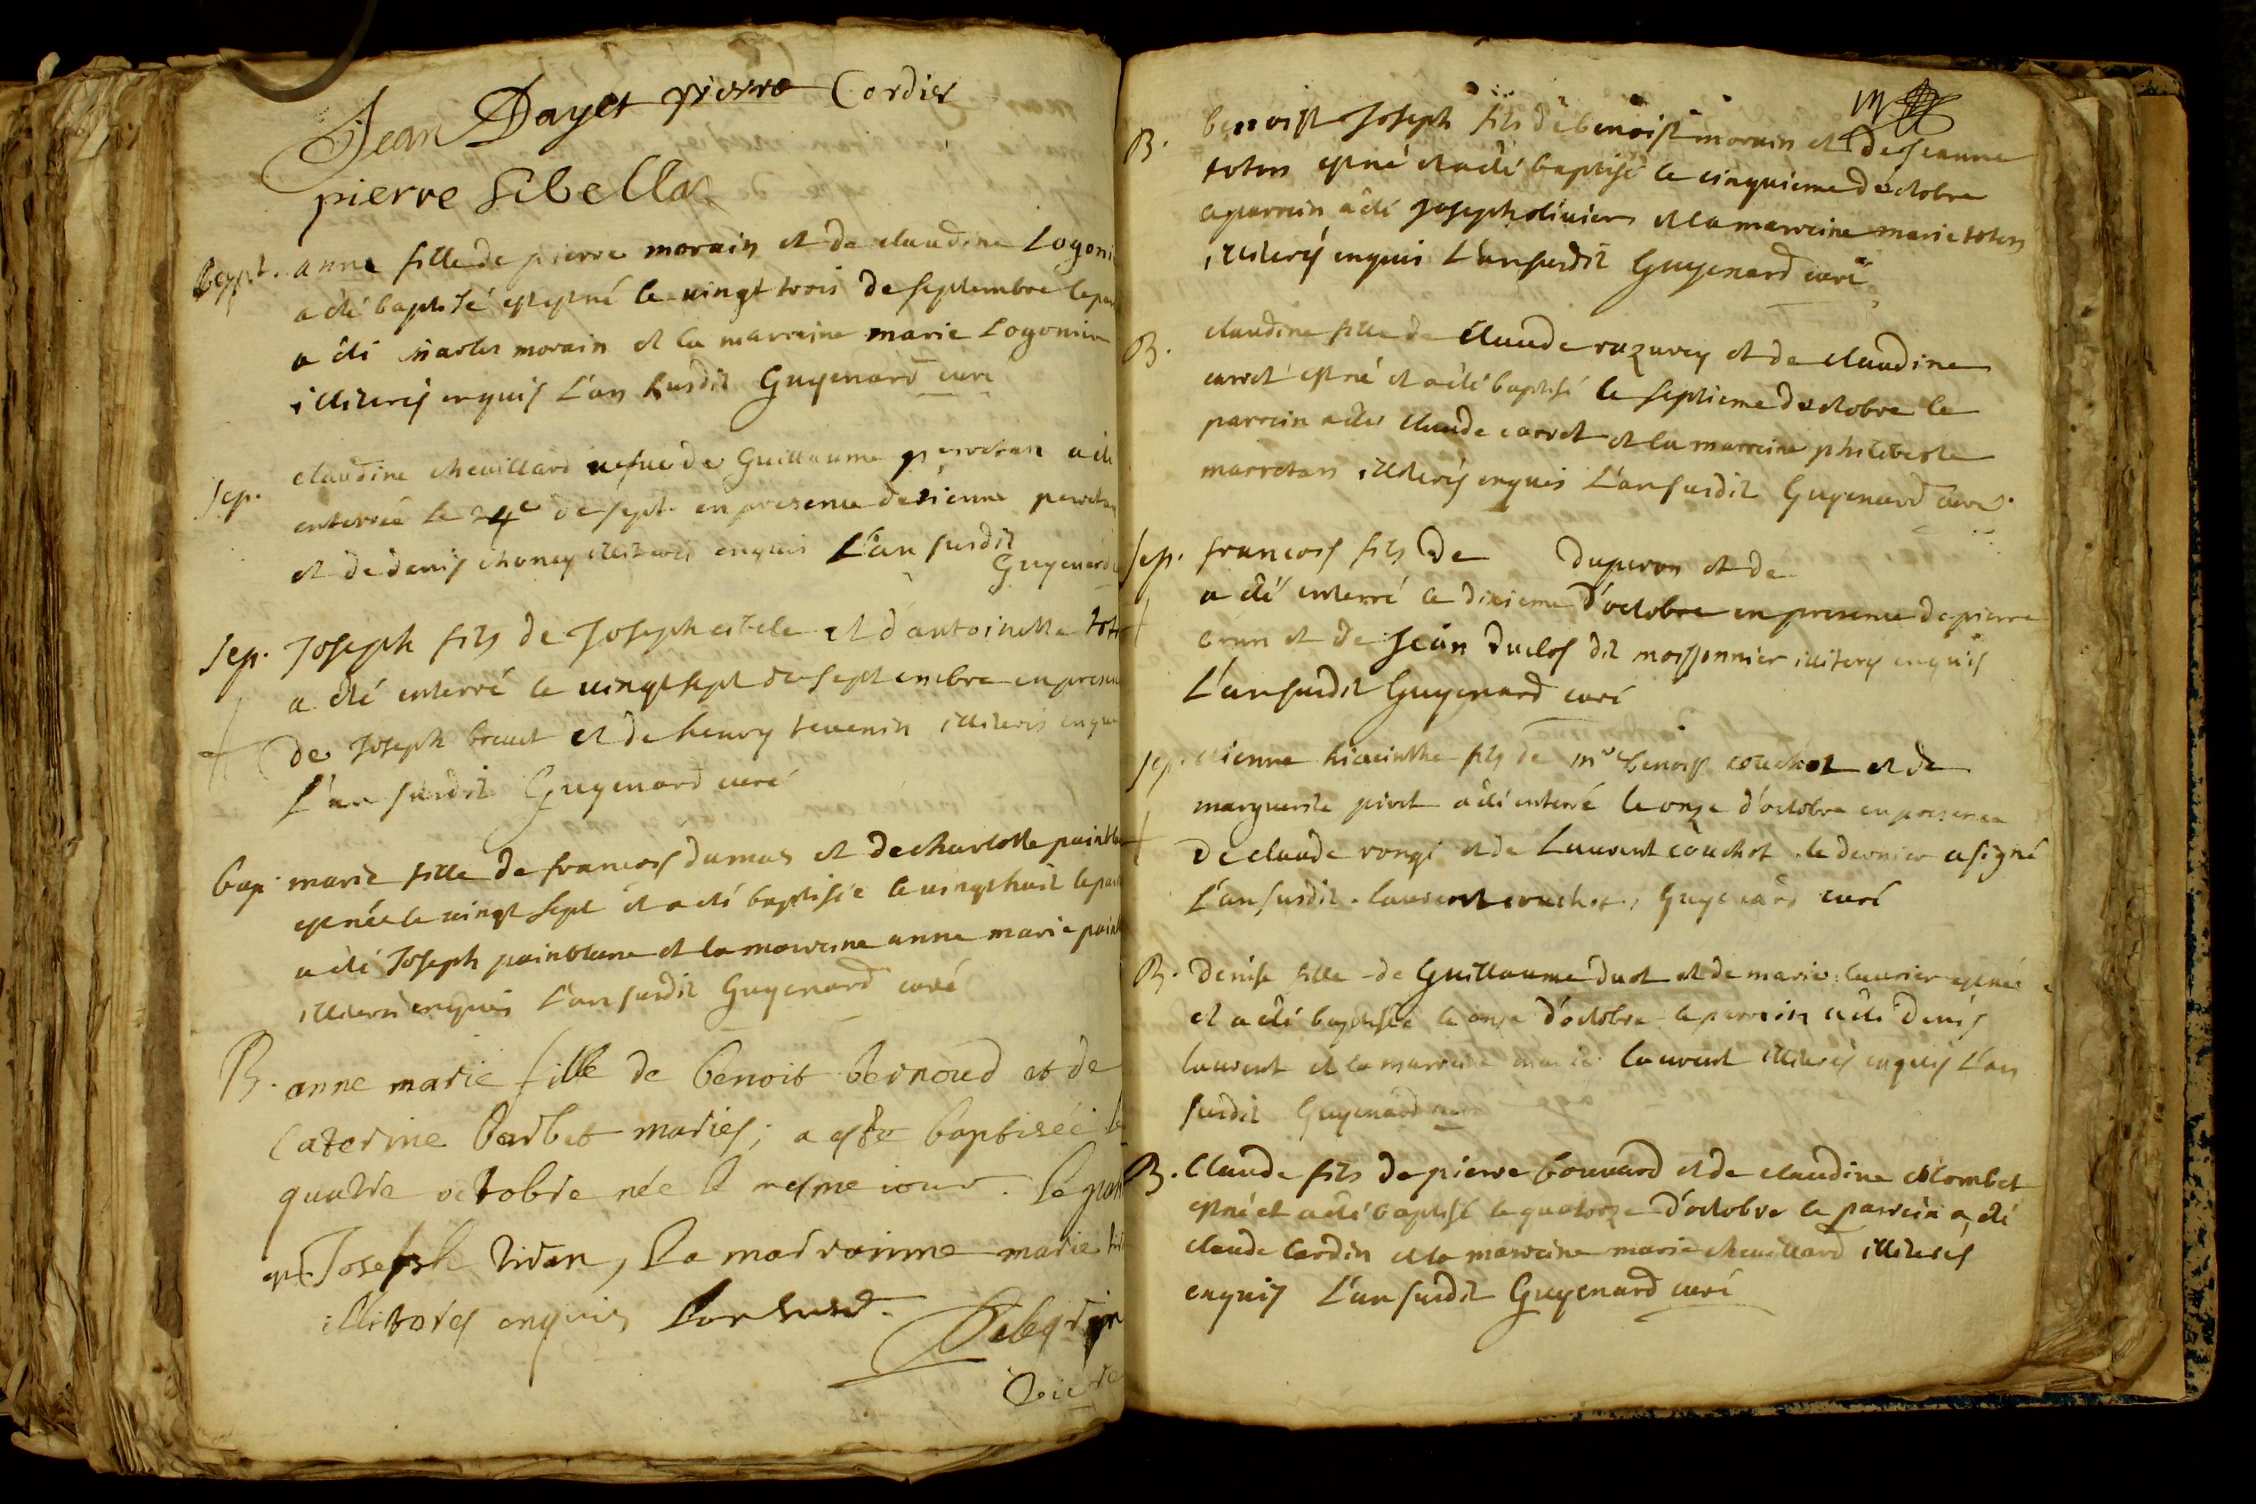 Jean Dayet pierre Cordier
pierre Sibella
bapt. anne fille de pierre morain et de claudine Logoni
a été baptisé est né le vingt trois de septembre le par
a été morain et la marraine marie Logonier
illiterés enquis L'an susdit Guyenard curé
Sep. claudine chevillard vefue de Guillaume a été
enterrée le 24e de sept. en presence de
et de denis illiterés enquis L'an susdit
Guyenard
Sep. Joseph fils de Joseph et d'antoinette
a été enterré le vingt sept de septembre en presen
de Joseph et de henry tevenin illiterés enquis
L'an susdit Guyenard curé
bap. marie fille de francois dumas et de charlotte painbl
est née le vingt sept et a été baptisée le vingt huit le par
a été Joseph painblanc et la marraine anne marie painb
illiterés enquis L'an susdit Guyenard curé
B. anne marie fille de benoit bernoud et de
Caterine Barbet mariés; a esté baptisée le
quatre octobre née le mesme iour. le par
est Joseph , la marrainne marie
illiterés enquis L'an susd.
vicaire
B. benoist Joseph fils de benoist morain et de Jeanne
est né et a été baptisé le cinquieme d'octobre
le parrein a été Joseph olivier et la marreine marie
illiterés enquis L'an susdit Guyenard curé
B. claudine fille de Claude et de claudine
carret est né et a été baptisé le septieme d'octobre le
parrein a été Claude carret et la marreine philiberte
illiterés enquis L'an susdit Guyenard curé
Sep. francois fils de duperon et de
a été enterré le dixieme d'octobre en presence de pierre
et de Jean duclos dit moissonnier illiterés enquis
L'an susdit Guyenard curé
Sep. etienne hiacinthe fils de mre benoist couchot et de
marguerite a été enterré le onze d'octobre en presence
de claude et de Laurent couchot le dernier a signé
L'an susdit. laurent couchot, Guyenard curé
B. denise fille de Guillaume et de marie est née
et a été baptisée le onze d'octobre le parrein a été denis
laurent et la marreine laurent illiterés enquis L'an
susdit Guyenard curé
B. Claude fils de pierre bouvard et de claudine colombet
est né et a été baptisé le quatorze d'octobre le parrein a été
claude cardin et la marreine marie chevillard illiterés
enquis L'an susdit Guyenard curé